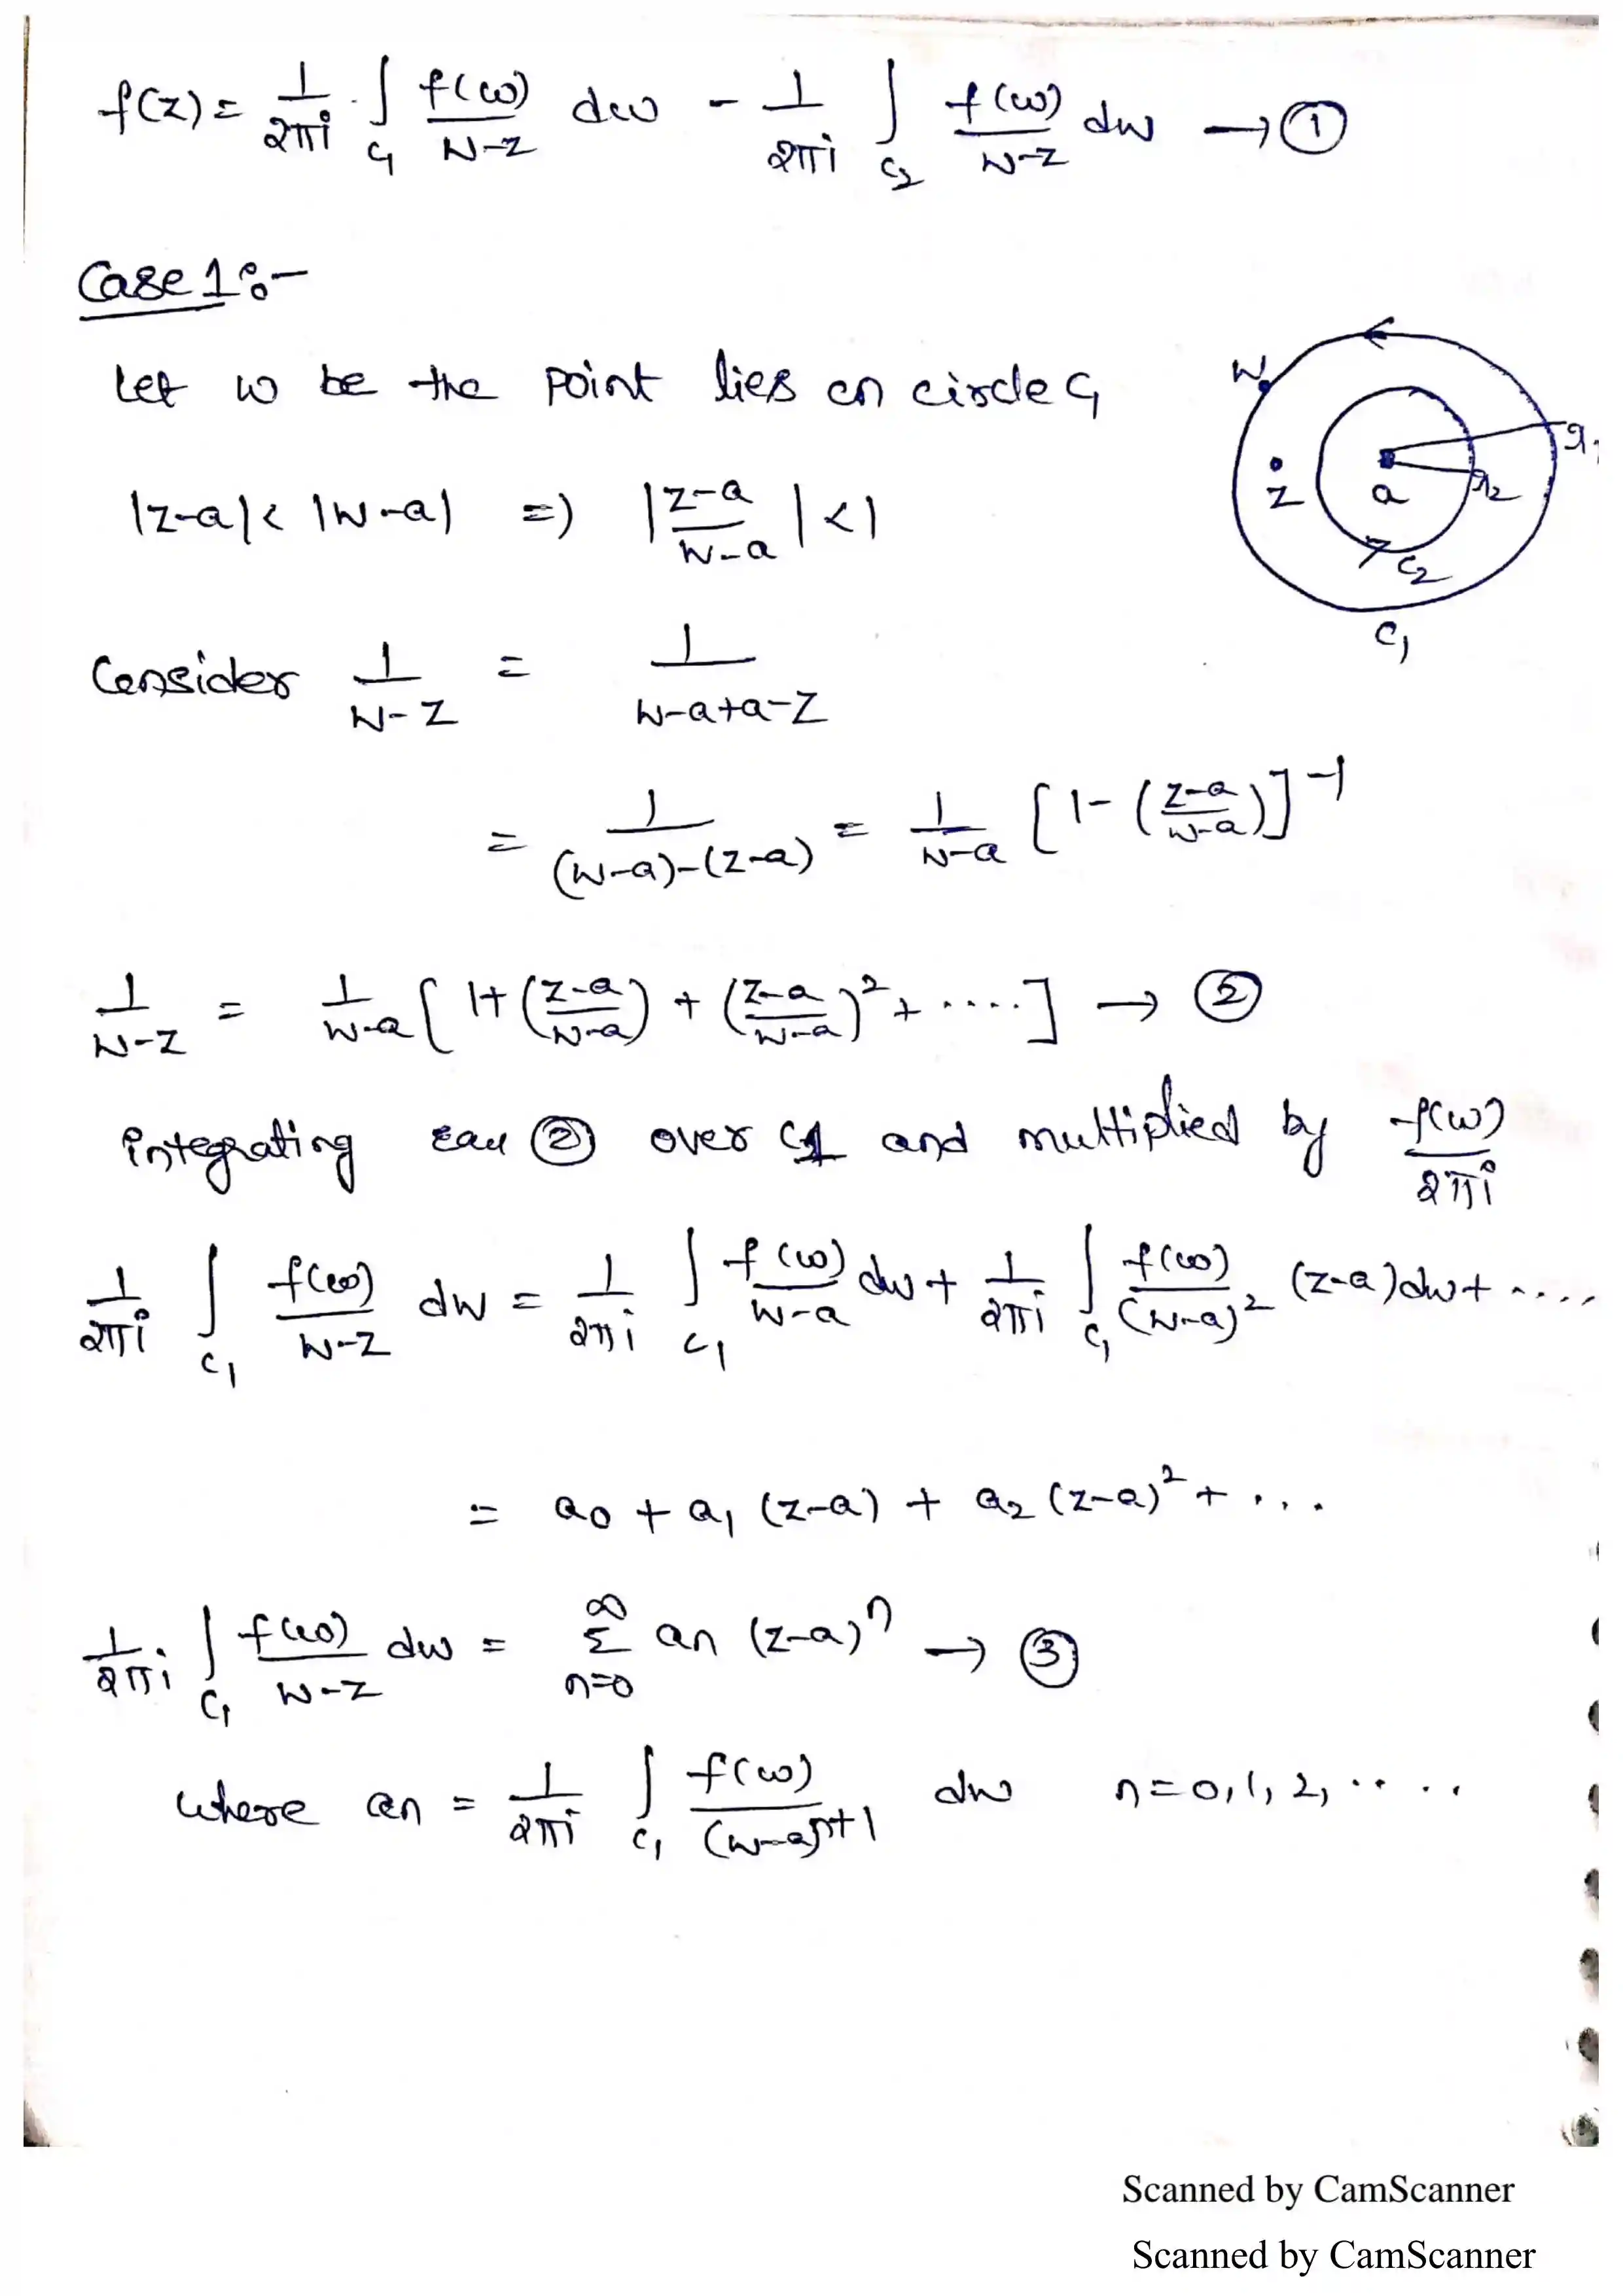 f(z) = 1/2πi ∫C1 f(w)/w-z dw - 1/2πi ∫C2 f(w)/w-z dw → ①
Case 1:-
Let w be the point lies on circle C1
|z-a| < |w-a| => |z-a/w-a| < 1
w
z
a
r1
r2
C2
C1
Consider 1/w-z = 1/w-a+a-z
= 1/(w-a)-(z-a) = 1/w-a [1-(z-a/w-a)]^-1
1/w-z = 1/w-a [1+(z-a/w-a) + (z-a/w-a)^2 + .....] → ②
integrating eqn ② over C1 and multiplied by f(w)/2πi
1/2πi ∫C1 f(w)/w-z dw = 1/2πi ∫C1 f(w)/w-a dw + 1/2πi ∫C1 f(w)/(w-a)^2 (z-a)dw + ....
= a0 + a1 (z-a) + a2 (z-a)^2 + ...
1/2πi ∫C1 f(w)/w-z dw = ∞ Σ n=0 an (z-a)^n → ③
where an = 1/2πi ∫C1 f(w)/(w-a)^n+1 dw n = 0, 1, 2, .....
Scanned by CamScanner
Scanned by CamScanner